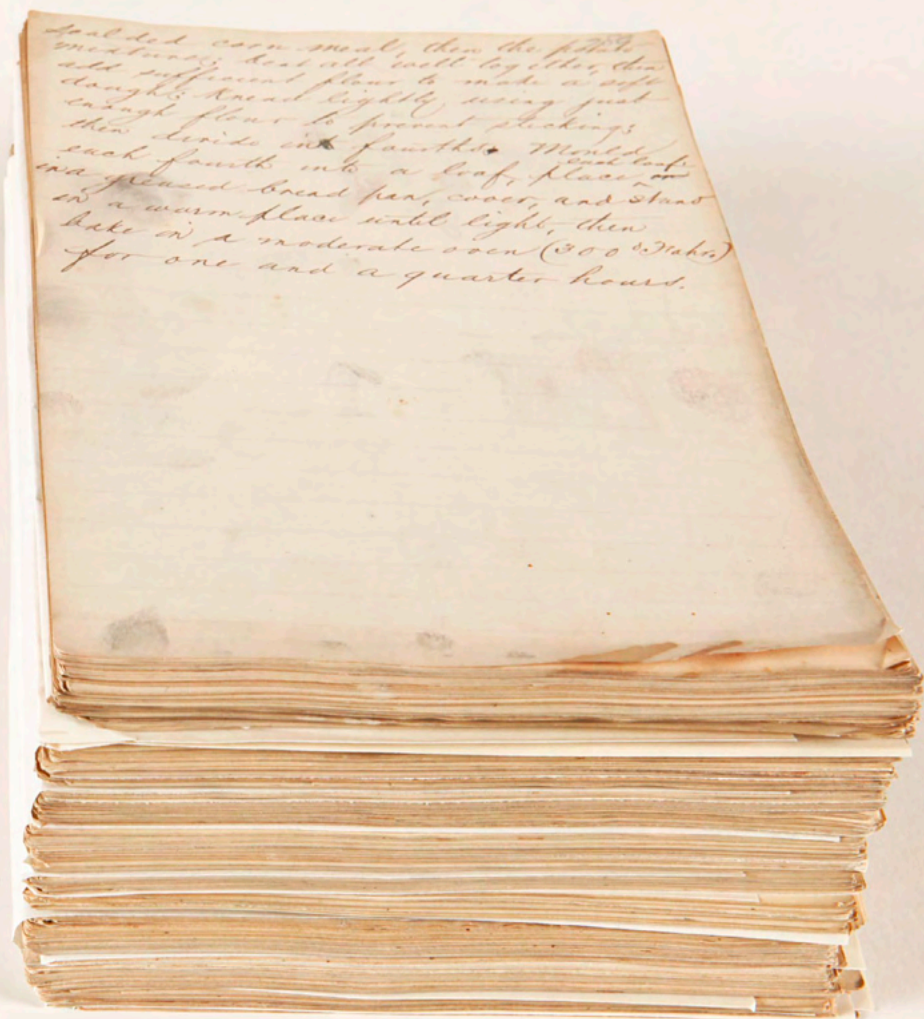 scalded corn meal, then the potato
mixture; beat all well together, then
add sufficient flour to make a soft
dough; knead lightly, using just
enough flour to prevent sticking;
then divide into fourths. Mould
each fourth into a loaf, place each loaf
in a greased bread pan, cover, and stand
in a warm place until light, then
bake in a moderate oven (300° Fahr.)
for one and a quarter hours.